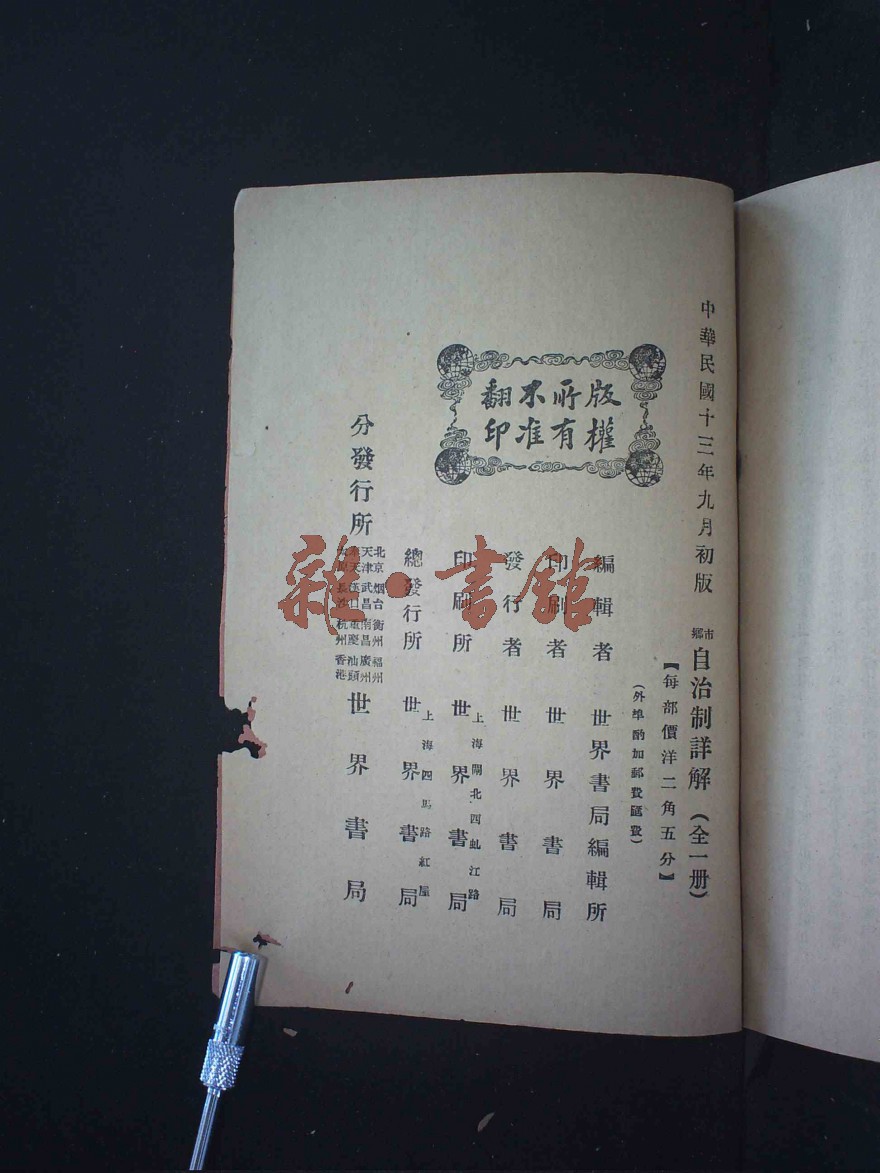 中華民國十三年九月初版
市鄉自治制詳解（全一册）
【每部價洋二角五分】
（外埠酌加郵費匯費）
版權
所有
不准
翻印
編輯者 世界書局編輯所
印刷者 世界書局
發行者 世界書局
印刷所 上海閘北西虬江路 世界書局
總發行所 上海四馬路紅屋 世界書局
分發行所
北京 烟台 衡州 福州
天津 武昌 南昌 廣州
奉天 漢口 重慶 汕頭
長沙 杭州 香港
世界書局
雜·書館